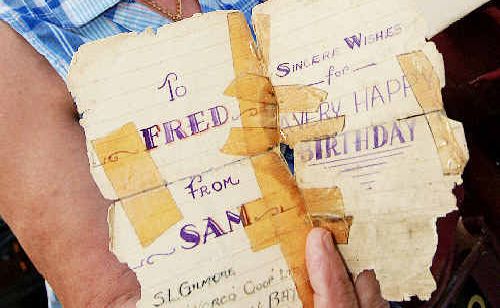 To
FRED
FROM
SAM
S.L. GILMORE
COOK
BAT
SINCERE WISHES
for
A VERY HAPPY
BIRTHDAY